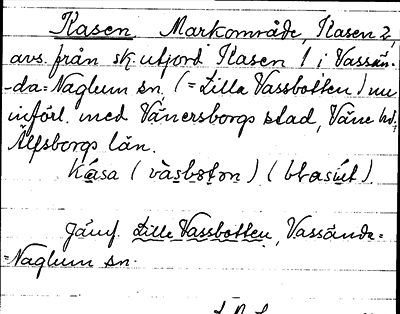 Kasen Markområde, Kasen 2,
avs. från sk. utjord Kasen 1 i Vassän-
-da-Naglum sn. (= Lilla Vassbotten) nu
införl. med Vänersborgs stad, Väne hd,
Älfsborgs län.
Kása (vàsbotən)
Jämf. Lilla Vassbotten, Vassända=
=Naglum sn.